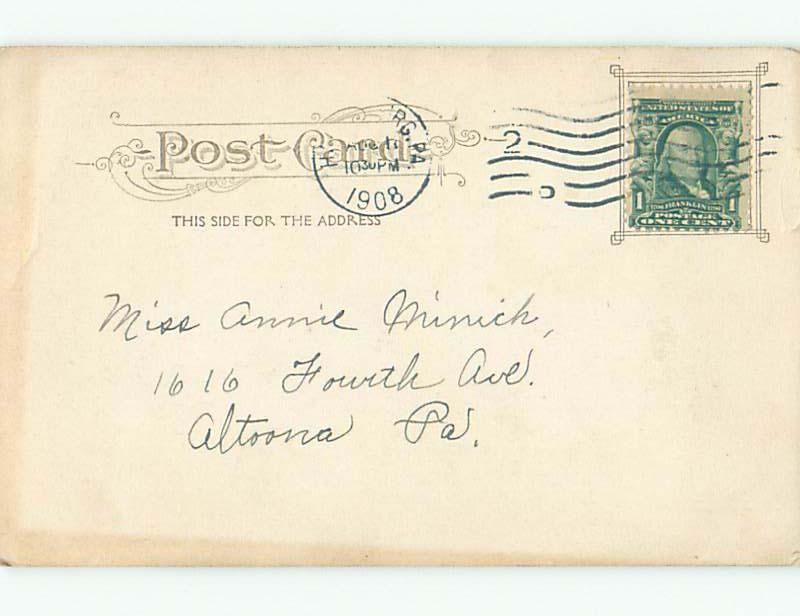 Post Card
THIS SIDE FOR THE ADDRESS
RG, PA
1030PM
1908
2
UNITED STATES OF
AMERICA
1 FRANKLIN 1
POSTAGE
ONE CENT
Miss Annie Minich,
1616 Fourth Ave.
Altoona Pa.